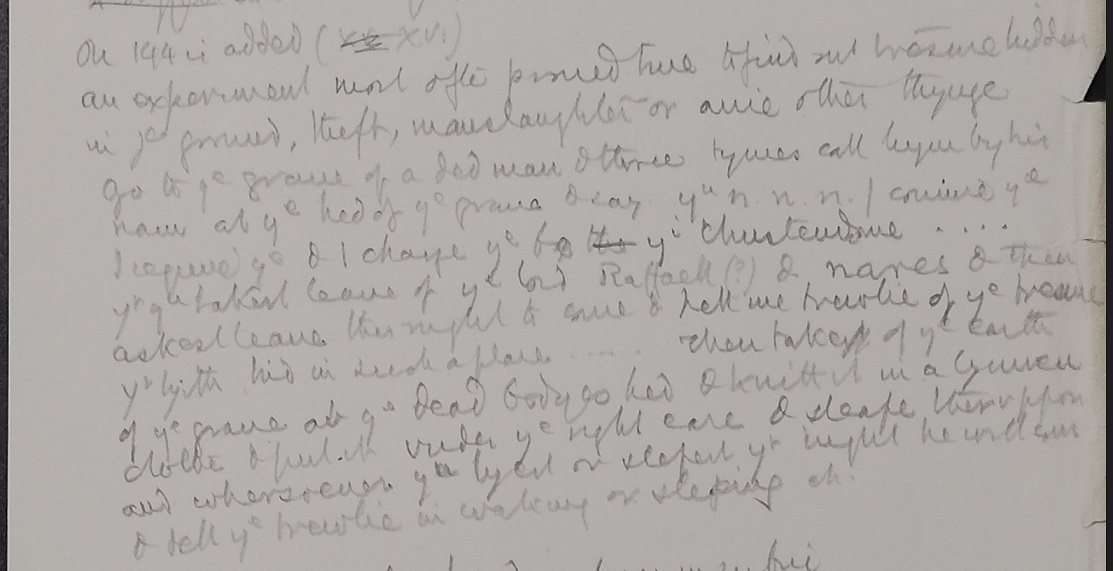 On 144 is added (xv XVI)
an experiment most ofte proued true to find out treasure hidden
in ye ground, theft, manslaughter or anie other thynge
go to ye graue of a ded man & three tymes call hym by his
name at ye hed of ye graue & say yu n. n. n. I coniure ye
I require ye & I charge ye by the yi Christendome . . . .
yt yu takest leaue of ye lord Raffaell (?) & nares & then
askest leaue this night to come & tell me trewlie of ye treasure
yt lyith hid in such a place ..... then take of ye earth
of ye graue at ye dead bodyes hed & knitt it in a lynnen
clothe & put it vnder ye right eare & sleape theruppon
and wheresoeuer yu lyest or slepest yt night he will com
& tell ye trewlie in waking or sleping